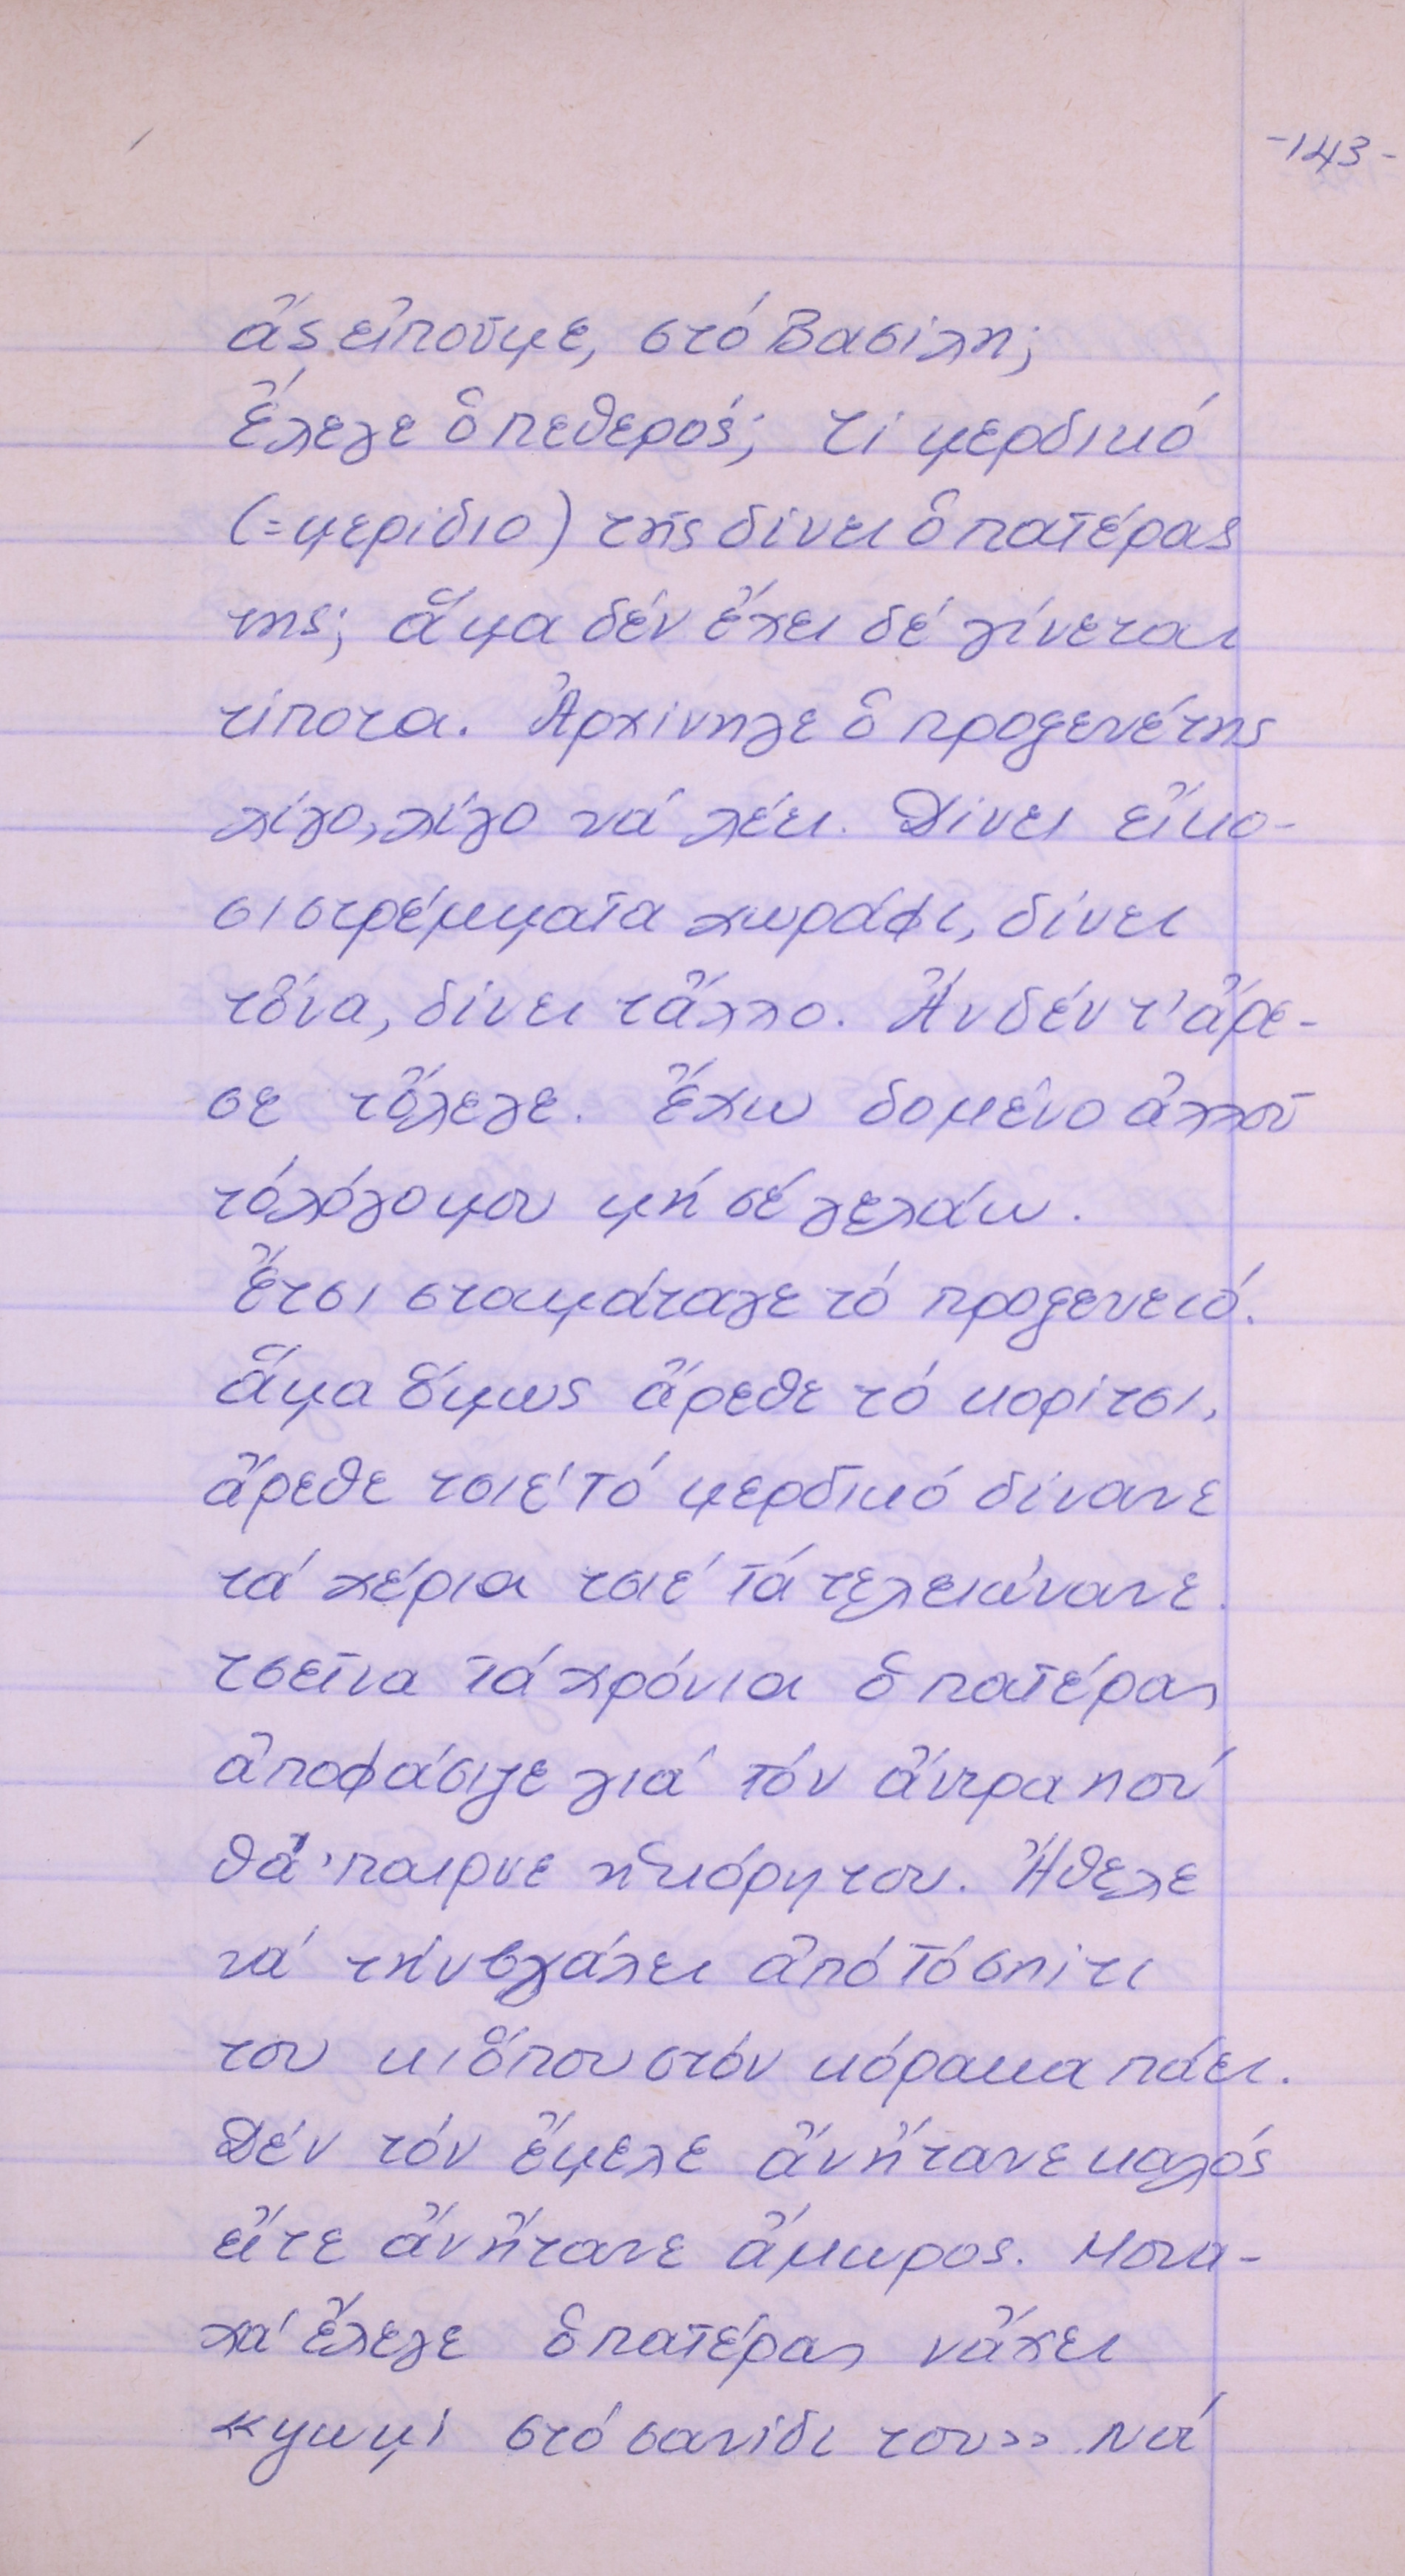 -143-
ἄς εἰποῦμε, στό Βασίλη;
Ἔλεγε ὁ πεθερός; τί μερδικό
(=μερίδιο) τῆς δίνει ὁ πατέρας
της; ἅμα δέν ἔχει δέ γίνεται
τίποτα. Ἀρχίνηγε ὁ προξενέτης
λίγο, λίγο νά λέει. Δίνει εἴκο-
σι στρέμματα χωράφι, δίνει
τὅνα, δίνει τἄλλο. Ἄν δέν τ' ἄρε-
σε τὄλεγε. Ἔχω δομένο ἀλλοῦ
τό λόγο μου μή σέ γελάω.
Ἔτσι σταμάταγε τό προξενειό.
ἅμα ὅμως ἄρεθε τό κορίτσι,
ἄρεθε τσιέ τό μερδικό δίνανε
τά χέρια τσιέ τά τελειώνανε.
τσεῖνα τά χρόνια ὁ πατέρας
ἀποφάσιζε γιά τόν ἄντρα πού
θά 'παιρνε ἡ κόρη του. Ἤθελε
νά τήν βγάλει ἀπό τό σπίτι
του κι ὅπου στόν κόρακα πάει.
Δέν τόν ἔμελε ἄν ἤτανε καλός
εἴτε ἄν ἤτανε ἄμωρος. Μονα-
χά ἔλεγε ὁ πατέρας νἄχει
«ψωμί στό σανίδι του» νά